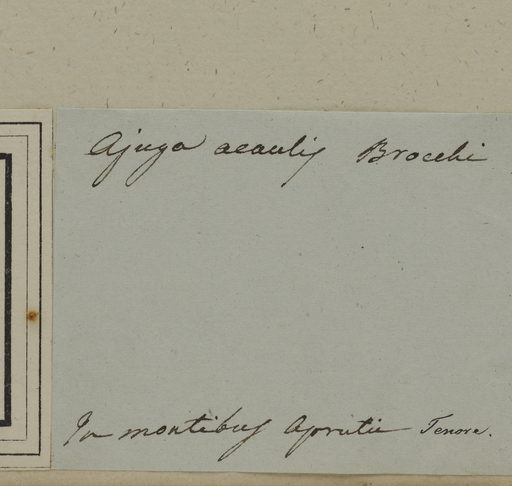 Ajuga acaulis Brocchi
In montibus Aprutii Tenore.